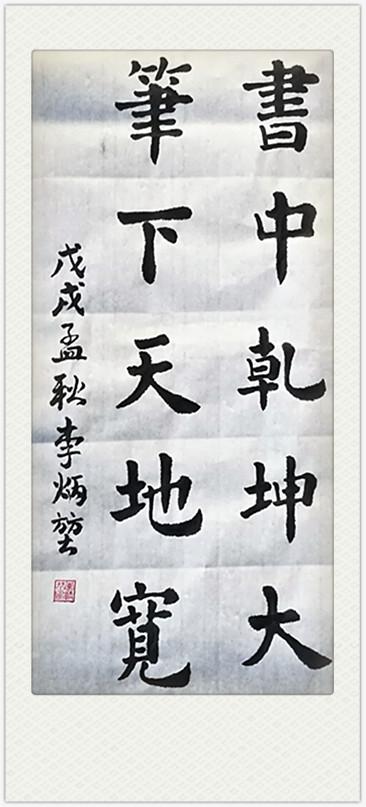 書中乾坤大
筆下天地寬
戊戌孟秋李炳堃